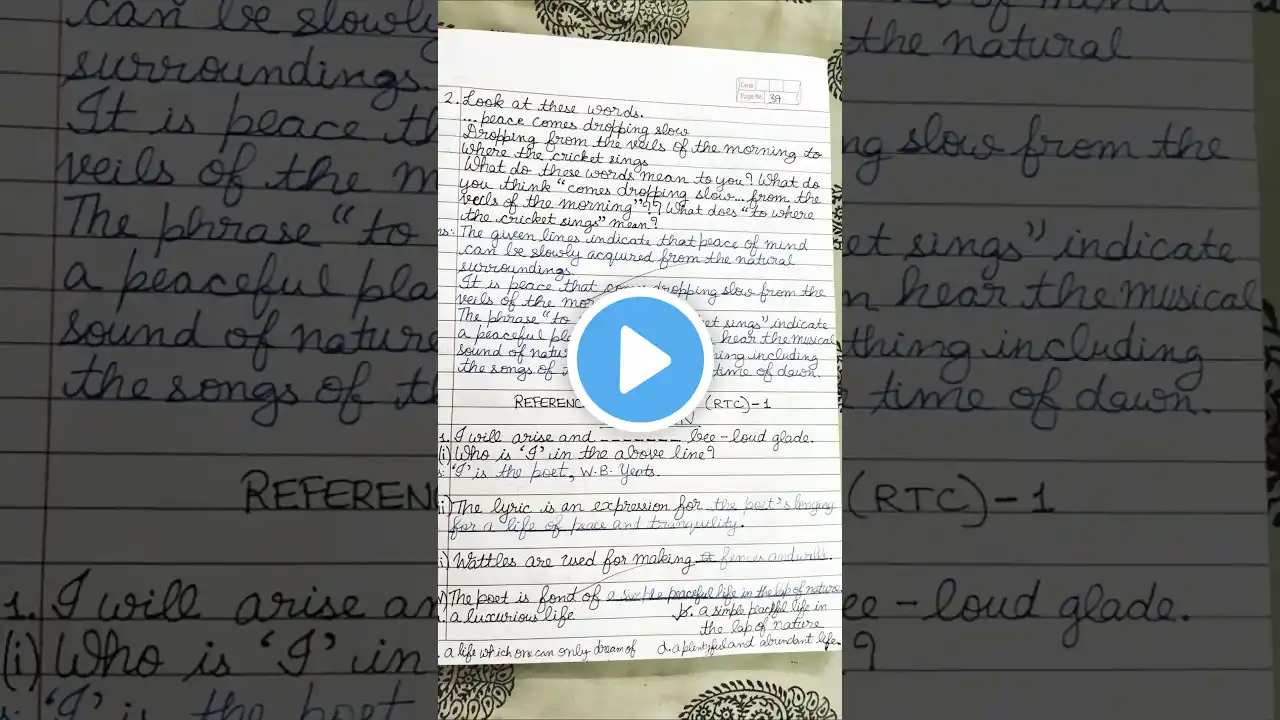 Date
Page No. 39
2. Look at these words.
... peace comes dropping slow
Dropping from the veils of the morning to
where the cricket sings
What do these words mean to you? What do
you think "comes dropping slow... from the
veils of the morning"?? What does "to where
the cricket sings" mean?
ns: The given lines indicate that peace of mind
can be slowly acquired from the natural
surroundings.
It is peace that come dropping slow from the
veils of the mor
The phrase "to ket sings" indicate
a peaceful pla hear the musical
sound of natu thing including
the songs of time of dawn.
REFERENC (RTC)-1
1. I will arise and _______ bee-loud glade.
(i) Who is 'I' in the above line?
s: 'I' is the poet, W.B. Yeats.
ii) The lyric is an expression for the poet's longing
for a life of peace and tranquility.
i) Wattles are used for making fences and walls.
v) The poet is fond of a simple peaceful life in the lap of nature
a. a luxurious life b. a simple peacful life in
the lap of nature
a life which one can only dream of d. a plentyful and abundant life.